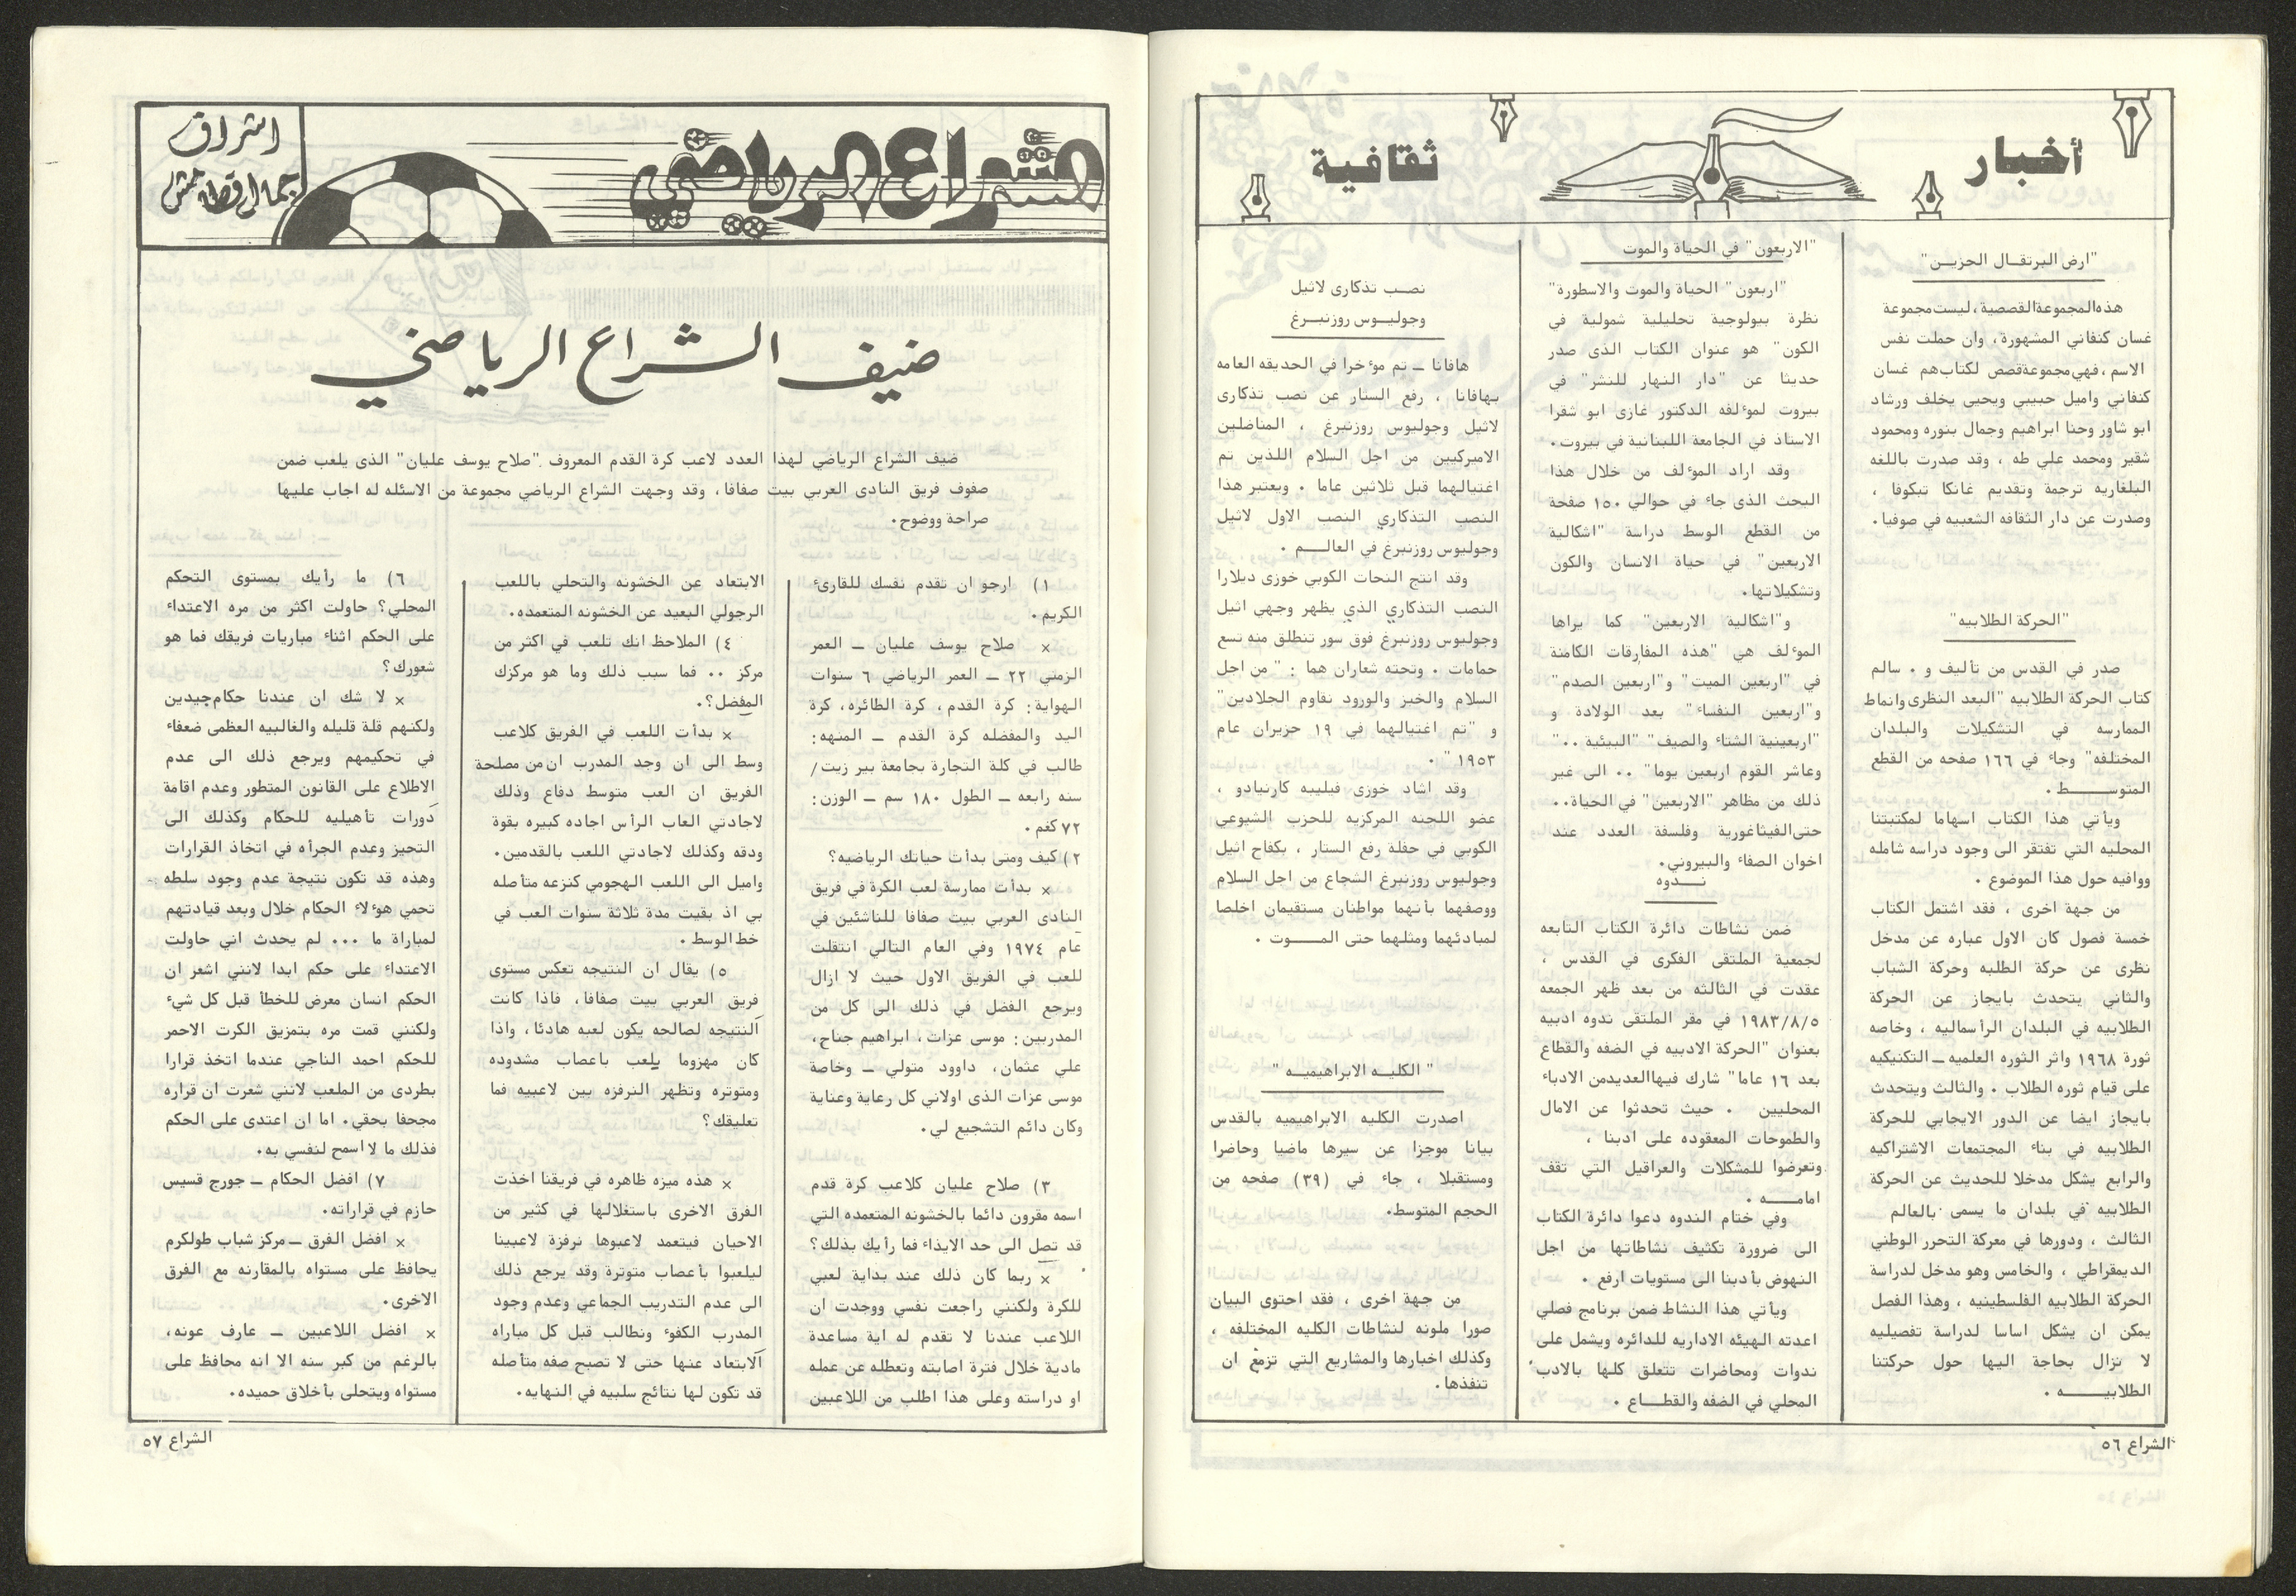 أخبار
ثقافية
"ارض البرتقـال الحزيـن"
هذه المجموعة القصصية، ليست مجموعة
غسان كنفاني المشهورة، وان حملت نفس
الاسم، فهي مجموعة قصص لكتاب هم غسان
كنفاني واميل حبيبي ويحيى يخلف ورشاد
ابو شاور وحنا ابراهيم وجمال بنوره ومحمود
شقير ومحمد علي طه ، وقد صدرت باللغه
البلغاريه ترجمة وتقديم غانكا تبكوفا ،
وصدرت عن دار الثقافه الشعبيه في صوفيا.
"الحركة الطلابيه"
صدر في القدس من تأليف و . سالم
كتاب الحركة الطلابيه "البعد النظرى وانماط
الممارسه في التشكيلات والبلدان
المختلفه" وجاء في ١٦٦ صفحه من القطع
المتوســـط .
ويأتي هذا الكتاب اسهاما لمكتبتنا
المحليه التي تفتقر الى وجود دراسه شامله
ووافيه حول هذا الموضوع .
من جهة اخرى ، فقد اشتمل الكتاب
خمسة فصول كان الاول عباره عن مدخل
نظرى عن حركة الطلبه وحركة الشباب
والثاني يتحدث بايجاز عن الحركة
الطلابيه في البلدان الرأسماليه ، وخاصه
ثورة ١٩٦٨ واثر الثوره العلميه ــ التكنيكيه
على قيام ثوره الطلاب . والثالث ويتحدث
بايجاز ايضا عن الدور الايجابي للحركة
الطلابيه في بناء المجتمعات الاشتراكيه
والرابع يشكل مدخلا للحديث عن الحركة
الطلابيه في بلدان ما يسمى بالعالم
الثالث ، ودورها في معركة التحرر الوطني
الديمقراطي ، والخامس وهو مدخل لدراسة
الحركة الطلابيه الفلسطينيه ، وهذا الفصل
يمكن ان يشكل اساسا لدراسة تفصيليه
لا نزال بحاجة اليها حول حركتنا
الطلابيـــه .
"الاربعون" في الحياة والموت
"اربعون" الحياة والموت والاسطورة"
نظرة بيولوجية تحليلية شمولية في
الكون" هو عنوان الكتاب الذى صدر
حديثا عن "دار النهار للنشر" في
بيروت لموءلفه الدكتور غازى ابو شقرا
الاستاذ في الجامعة اللبنانية في بيروت.
وقد اراد الموءلف من خلال هذا
البحث الذى جاء في حوالي ١٥٠ صفحة
من القطع الوسط دراسة "اشكالية
الاربعين" في حياة الانسان والكون
وتشكيلاتها.
و"اشكالية الاربعين" كما يراها
الموءلف هي "هذه المفارقات الكامنة
في "اربعين الميت" و"اربعين الصدم"
و"اربعين النفساء" بعد الولادة و
"اربعينية الشتاء والصيف" "البيئية .."
وعاشر القوم اربعين يوما" .. الى غير
ذلك من مظاهر "الاربعين" في الحياة..
حتى الفيثاغورية وفلسفة العدد عند
اخوان الصفاء والبيروني.
نـــدوه
ضمن نشاطات دائرة الكتاب التابعه
لجمعية الملتقى الفكرى في القدس ،
عقدت في الثالثه من بعد ظهر الجمعه
١٩٨٣/٨/٥ في مقر الملتقى ندوه ادبيه
بعنوان "الحركة الادبيه في الضفه والقطاع
بعد ١٦ عاما" شارك فيها العديد من الادباء
المحليين . حيث تحدثوا عن الامال
والطموحات المعقوده على ادبنا ،
وتعرضوا للمشكلات والعراقيل التي تقف
امامـــه .
وفي ختام الندوه دعوا دائرة الكتاب
الى ضرورة تكثيف نشاطاتها من اجل
النهوض بأدبنا الى مستويات ارفع .
ويأتي هذا النشاط ضمن برنامج فصلي
اعدته الهيئه الاداريه للدائره ويشمل على
ندوات ومحاضرات تتعلق كلها بالادب
المحلي في الضفه والقطـــاع .
نصــب تذكارى لاثيل
وجوليــوس روزنبــرغ
هافانا ــ تم موءخرا في الحديقه العامه
بهافانا ، رفع الستار عن نصب تذكارى
لاثيل وجوليوس روزنبرغ ، المناضلين
الاميركيين من اجل السلام اللذين تم
اغتيالهما قبل ثلاثين عاما . ويعتبر هذا
النصب التذكاري النصب الاول لاثيل
وجوليوس روزنبرغ في العالـــم .
وقد انتج النحات الكوبي خوزى ديلارا
النصب التذكاري الذي يظهر وجهي اثيل
وجوليوس روزنبرغ فوق سور تنطلق منه تسع
حمامات . وتحته شعاران هما : "من اجل
السلام والخبز والورود نقاوم الجلادين"
و "تم اغتيالهما في ١٩ حزيران عام
١٩٥٣" .
وقد اشاد خوزى فيليبه كارنيادو ،
عضو اللجنه المركزيه للحزب الشيوعي
الكوبي في حفلة رفع الستار ، بكفاح اثيل
وجوليوس روزنبرغ الشجاع من اجل السلام
ووصفهما بأنهما مواطنان مستقيمان اخلصا
لمبادئهما ومثلهما حتى المـــوت .
" الكليـه الابراهيميـه "
اصدرت الكليه الابراهيميه بالقدس
بيانا موجزا عن سيرها ماضيا وحاضرا
ومستقبلا ، جاء في (٣٩) صفحه من
الحجم المتوسط.
من جهة اخرى ، فقد احتوى البيان
صورا ملونه لنشاطات الكليه المختلفه ،
وكذلك اخبارها والمشاريع التي تزمع ان
تنفذها.
الشراع ٥٦
الشراع الرياضي
اشراق
جمال قطامش
ضيف الشراع الرياضي
ضيف الشراع الرياضي لهذا العدد لاعب كرة القدم المعروف "صلاح يوسف عليان" الذى يلعب ضمن
صفوف فريق النادى العربي بيت صفافا، وقد وجهت الشراع الرياضي مجموعة من الاسئله له اجاب عليها
صراحة ووضوح.
١) ارجو ان تقدم نفسك للقارىء
الكريم.
× صلاح يوسف عليان ــ العمر
الزمني ٢٢ ــ العمر الرياضي ٦ سنوات
الهواية: كرة القدم، كرة الطائره، كرة
اليد والمفضله كرة القدم ــ المنهه:
طالب في كلة التجارة بجامعة بير زيت/
سنه رابعه ــ الطول ١٨٠ سم ــ الوزن:
٧٢ كغم.
٢) كيف ومتى بدأت حياتك الرياضيه؟
× بدأت ممارسة لعب الكرة في فريق
النادى العربي بيت صفافا للناشئين في
عام ١٩٧٤ وفي العام التالي انتقلت
للعب في الفريق الاول حيث لا ازال
ويرجع الفضل في ذلك الى كل من
المدربين: موسى عزات، ابراهيم جناح،
علي عثمان، داوود متولي ــ وخاصة
موسى عزات الذى اولاني كل رعاية وعناية
وكان دائم التشجيع لي.
٣) صلاح عليان كلاعب كرة قدم
اسمه مقرون دائما بالخشونه المتعمده التي
قد تصل الى حد الايذاء فما رأيك بذلك؟
× ربما كان ذلك عند بداية لعبي
للكرة ولكنني راجعت نفسي ووجدت ان
اللاعب عندنا لا تقدم له اية مساعدة
مادية خلال فترة اصابته وتعطله عن عمله
او دراسته وعلى هذا اطلب من اللاعبين
الابتعاد عن الخشونه والتحلي باللعب
الرجولي البعيد عن الخشونه المتعمده.
٤) الملاحظ انك تلعب في اكثر من
مركز .. فما سبب ذلك وما هو مركزك
المفضل؟.
× بدأت اللعب في الفريق كلاعب
وسط الى ان وجد المدرب ان من مصلحة
الفريق ان العب متوسط دفاع وذلك
لاجادتي العاب الرأس اجاده كبيره بقوة
ودقه وكذلك لاجادتي اللعب بالقدمين.
واميل الى اللعب الهجومي كنزعه متأصله
بي اذ بقيت مدة ثلاثة سنوات العب في
خط الوسط.
٥) يقال ان النتيجه تعكس مستوى
فريق العربي بيت صفافا، فاذا كانت
النتيجه لصالحه يكون لعبه هادئا، واذا
كان مهزوما يلعب باعصاب مشدوده
ومتوتره وتظهر النرفزه بين لاعبيه فما
تعليقك؟
× هذه ميزه ظاهره في فريقنا اخذت
الفرق الاخرى باستغلالها في كثير من
الاحيان فيتعمد لاعبوها نرفزة لاعبينا
ليلعبوا بأعصاب متوترة وقد يرجع ذلك
الى عدم التدريب الجماعي وعدم وجود
المدرب الكفوء ونطالب قبل كل مباراه
الابتعاد عنها حتى لا تصبح صفه متأصله
قد تكون لها نتائج سلبيه في النهايه.
٦) ما رأيك بمستوى التحكم
المحلي؟ حاولت اكثر من مره الاعتداء
على الحكم اثناء مباريات فريقك فما هو
شعورك؟
× لا شك ان عندنا حكام جيدين
ولكنهم قلة قليله والغالبيه العظمى ضعفاء
في تحكيمهم ويرجع ذلك الى عدم
الاطلاع على القانون المتطور وعدم اقامة
دورات تأهيليه للحكام وكذلك الى
التحيز وعدم الجرأه في اتخاذ القرارات
وهذه قد تكون نتيجة عدم وجود سلطه
تحمي هوءلاء الحكام خلال وبعد قيادتهم
لمباراة ما ... لم يحدث اني حاولت
الاعتداء على حكم ابدا لانني اشعر ان
الحكم انسان معرض للخطأ قبل كل شيء
ولكنني قمت مره بتمزيق الكرت الاحمر
للحكم احمد الناجي عندما اتخذ قرارا
بطردى من الملعب لانني شعرت ان قراره
مجحفا بحقي. اما ان اعتدى على الحكم
فذلك ما لا اسمح لنفسي به.
٧) افضل الحكام ــ جورج قسيس
حازم في قراراته.
× افضل الفرق ــ مركز شباب طولكرم
يحافظ على مستواه بالمقارنه مع الفرق
الاخرى.
× افضل اللاعبين ــ عارف عونه،
بالرغم من كبر سنه الا انه محافظ على
مستواه ويتحلى بأخلاق حميده.
الشراع ٥٧